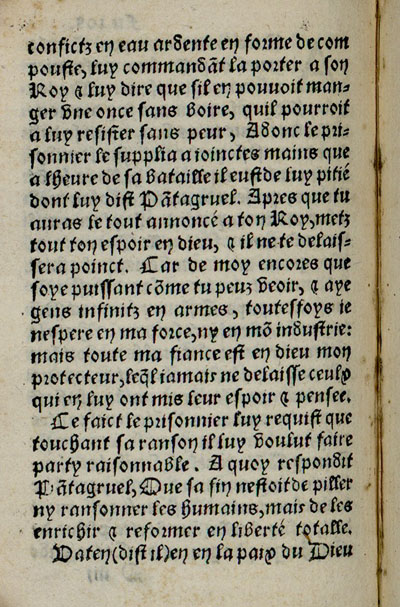 confictz en eau ardente en forme de com
pouste, luy commandãt la porter a son
Roy & luy dire que sil en pouvoit man-
ger vne once sans boire, quil pourroit
a luy resister sans peur, Adonc le pri-
sonnier le supplia a ioinctes mains que
a lheure de sa bataille il eust de luy pitié
dont luy dist Pãtagruel. Apres que tu
auras le tout annoncé a ton Roy, metz
tout ton espoir en dieu, & il ne te delais-
sera poinct. Car de moy encores que
soye puissant cõme tu peuz veoir, & aye
gens infinitz en armes, toutesfoys ie
nespere en ma force, ny en mõ industrie:
mais toute ma fiance est en dieu mon
protecteur, leq̃l iamais ne delaisse ceulx
qui en luy ont mis leur espoir & pensee.
Ce faict le prisonnier luy requist que
touchant sa ranson il luy voulut faire
party raisonnable. A quoy respondit
Pãtagruel, Que sa fin nestoit de piller
ny ransonner les humains, mais de les
enrichir & reformer en liberté totalle.
Vaten (dist il) en en la paix du Dieu